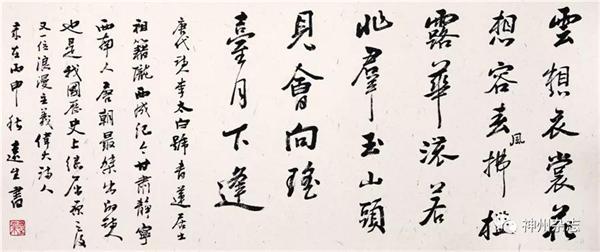 雲想衣裳花
想容春風拂檻
露華濃若
非群玉山頭
見會向瑤
臺月下逢
唐代詩李太白號青蓮居士
祖籍隴西成紀今甘肅靜寧
西南人唐朝最傑出的詩人
也是我國歷史上繼屈原之後
又一位浪漫主義偉大詩人
歲在丙申秋遠生書
神州杂志